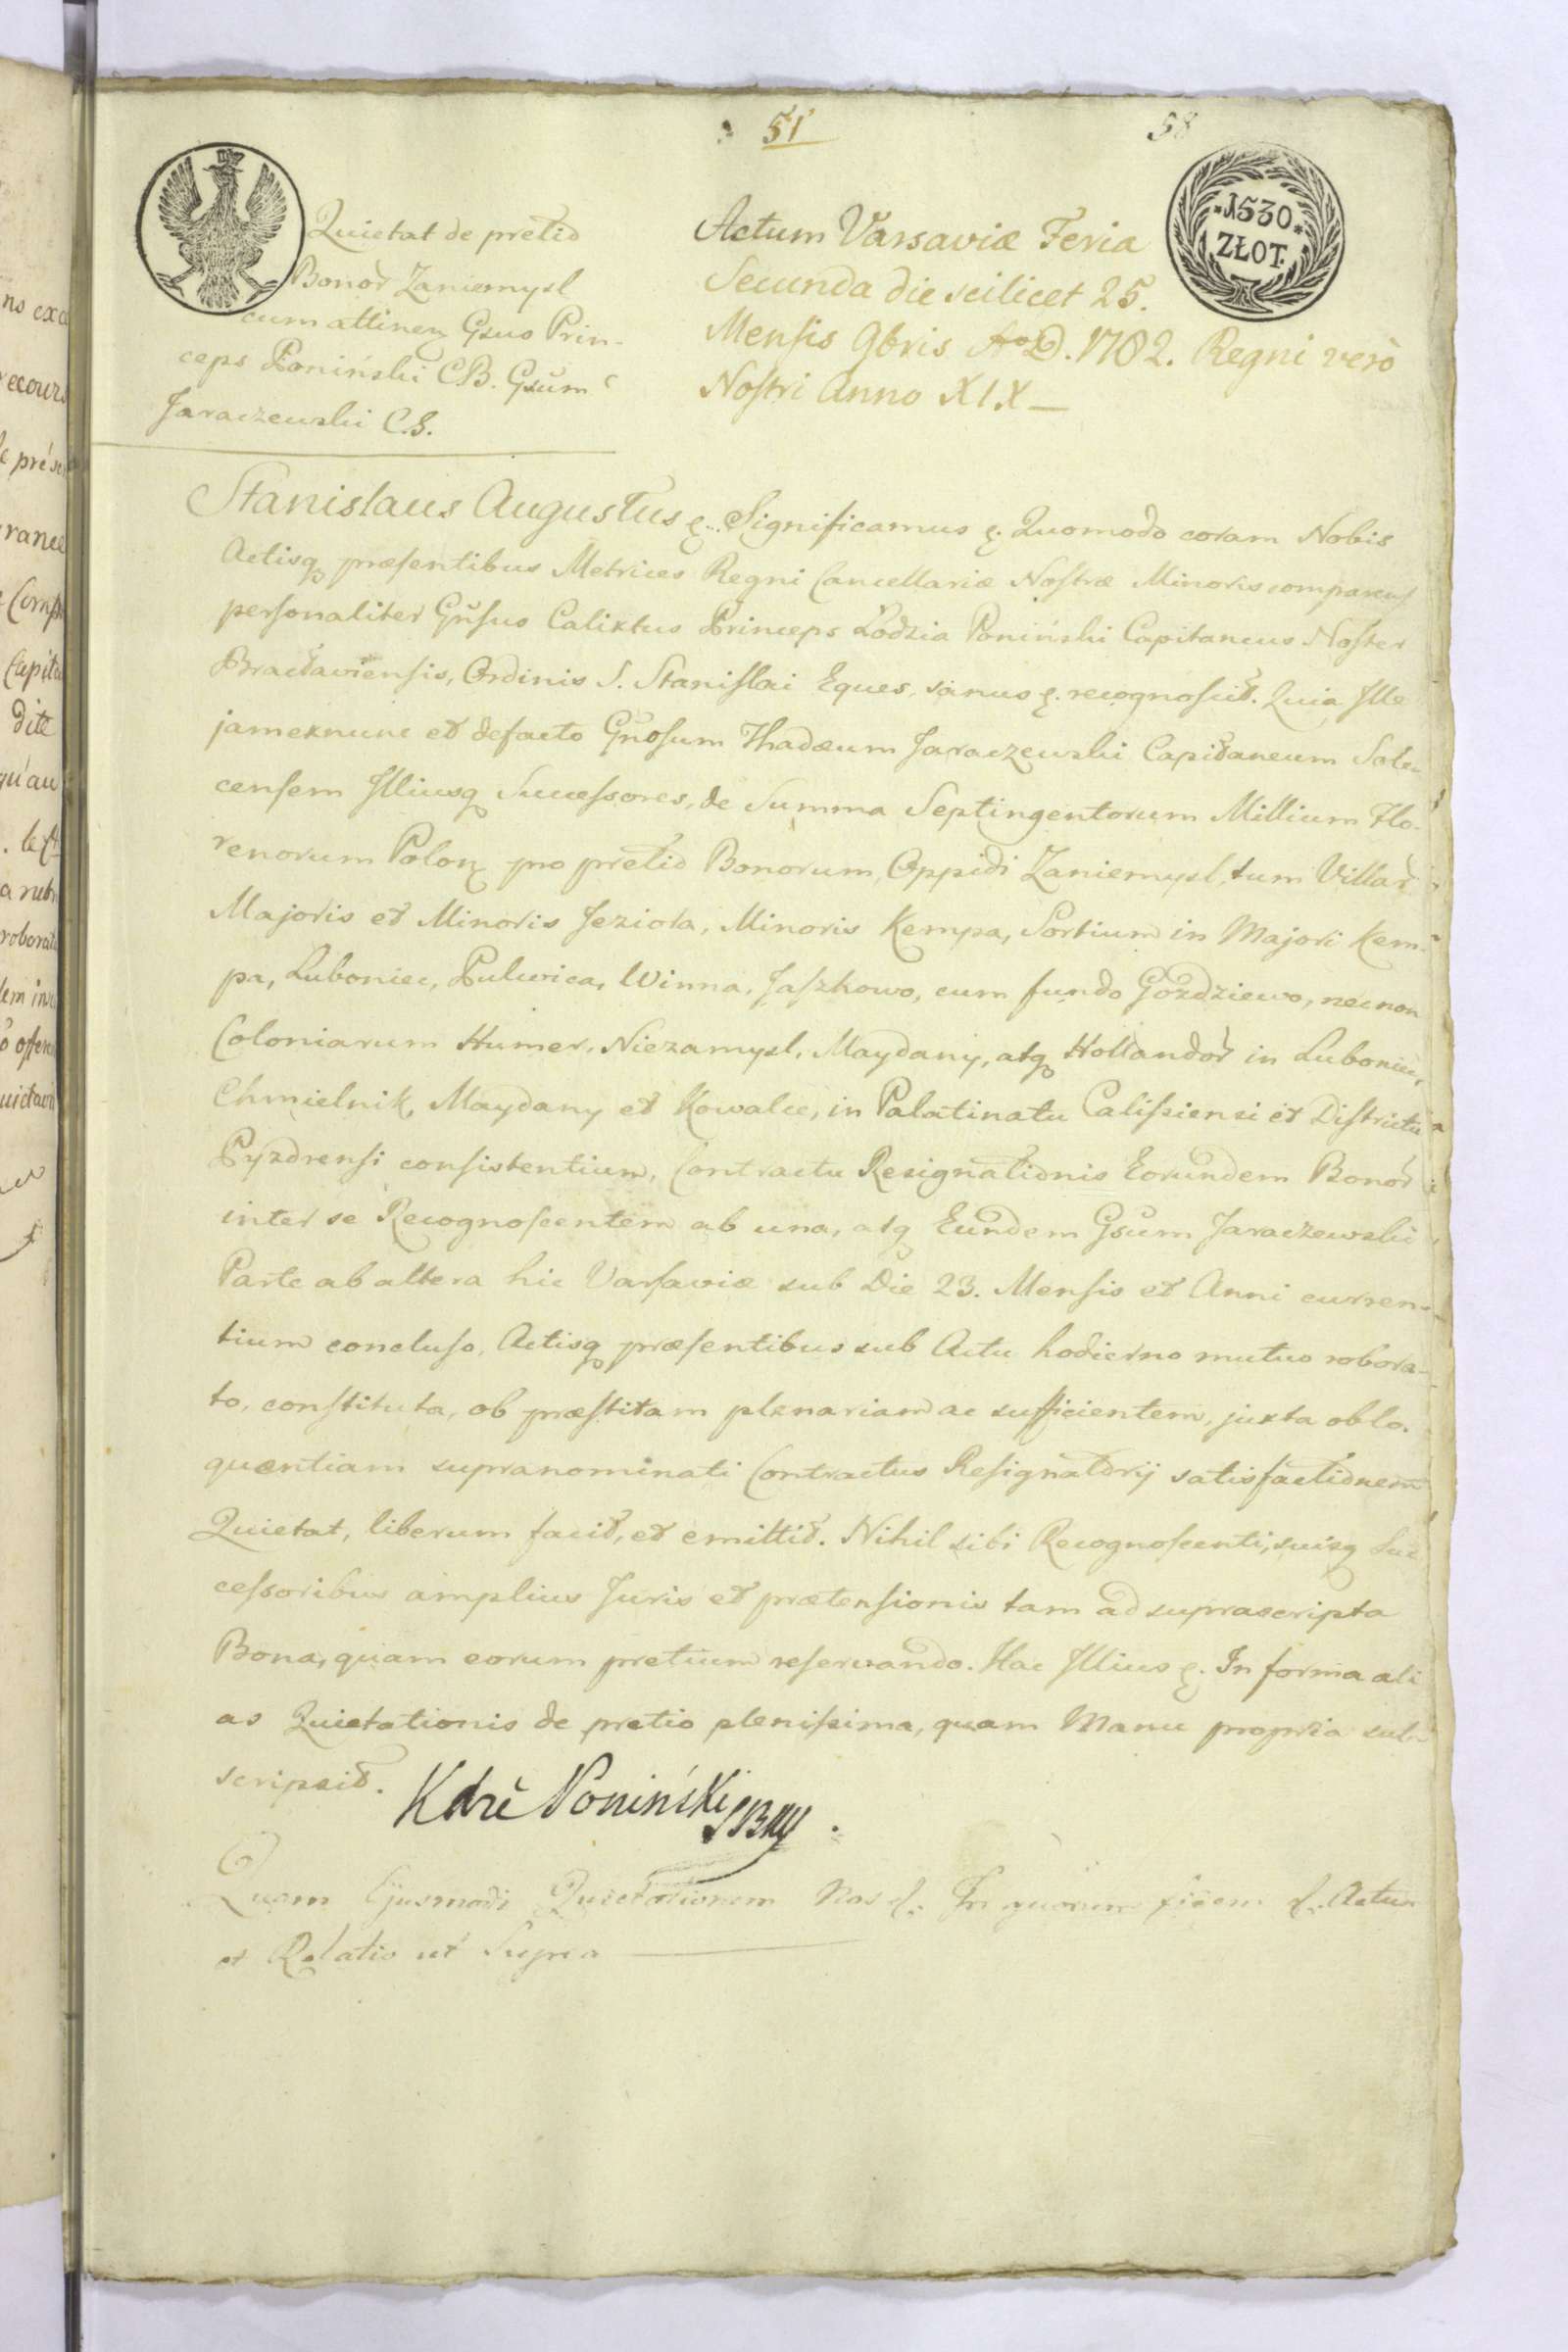 51
58
·1530·
ZŁOT.
Quietat de pretio
Bonor Zaniemysl
cum attinen Gsus Prin-
ceps Poniński C.B. Gsum
Jaraczewski C.S.
Actum Varsaviæ Feria
Secunda die scilicet 25.
Mensis 9bris Aᵒ D. 1782. Regni verò
Nostri Anno XIX—
Stanislaus Augustus &. Significamus &. Quomodo coram Nobis
Actisq præsentibus Metrices Regni Cancellariæ Nostræ Minoris comparens
personaliter Gnsus Calixtus Princeps Łodzia Poniński Capitaneus Noster
Bracłaviensis, Ordinis S. Stanislai Eques, sanus &. recognoscit. Quia Ille
jamexnunc et defacto Gnosum Thadæum Jaraczewski Capitaneum Sole-
censem Illiusq Successores, de Summa Septingentorum Millium Flo-
renorum Polon pro pretio Bonorum, Oppidi Zaniemysl, tum Villar
Majoris et Minoris Jeziora, Minoris Kempa, Sortium in Majori Kem-
pa, Luboniec, Pulwica, Winna, Jaszkowo, cum fundo Gozdziewo, necnon
Coloniarum Humer, Niezamysl, Maydany, atq Hollandor in Luboniec,
Chmielnik, Maydany et Kowalec, in Palatinatu Calissiensi et Districtu
Pyzdrensi consistentium, Contractu Resignationis Eorundem Bonor
inter se Recognoscentem ab una, atq Eundem Gsum Jaraczewski
Parte ab altera hic Varsaviæ sub Die 23. Mensis et Anni curren-
tium concluso, Actisq præsentibus sub Actu hodierno mutuo robora-
to, constituta, ob præstitam plenariam ac sufficientem, juxta oblo-
quæntiam supranominati Contractus Resignatorij satisfactionem
Quietat, liberum facit, et emittit. Nihil sibi Recognoscenti, suisq Suc
cessoribus amplius Juris et prætensionis tam ad suprascripta
Bona, quam eorum pretium reservando. Hac Illius &. In forma ali
as Quietationis de pretio plenissima, quam Manu propria sub
scripsit.
Poniński
Quam Ejusmodi Quietationem Nos &. In quorum fidem &. Actum
et Relatio ut Supra